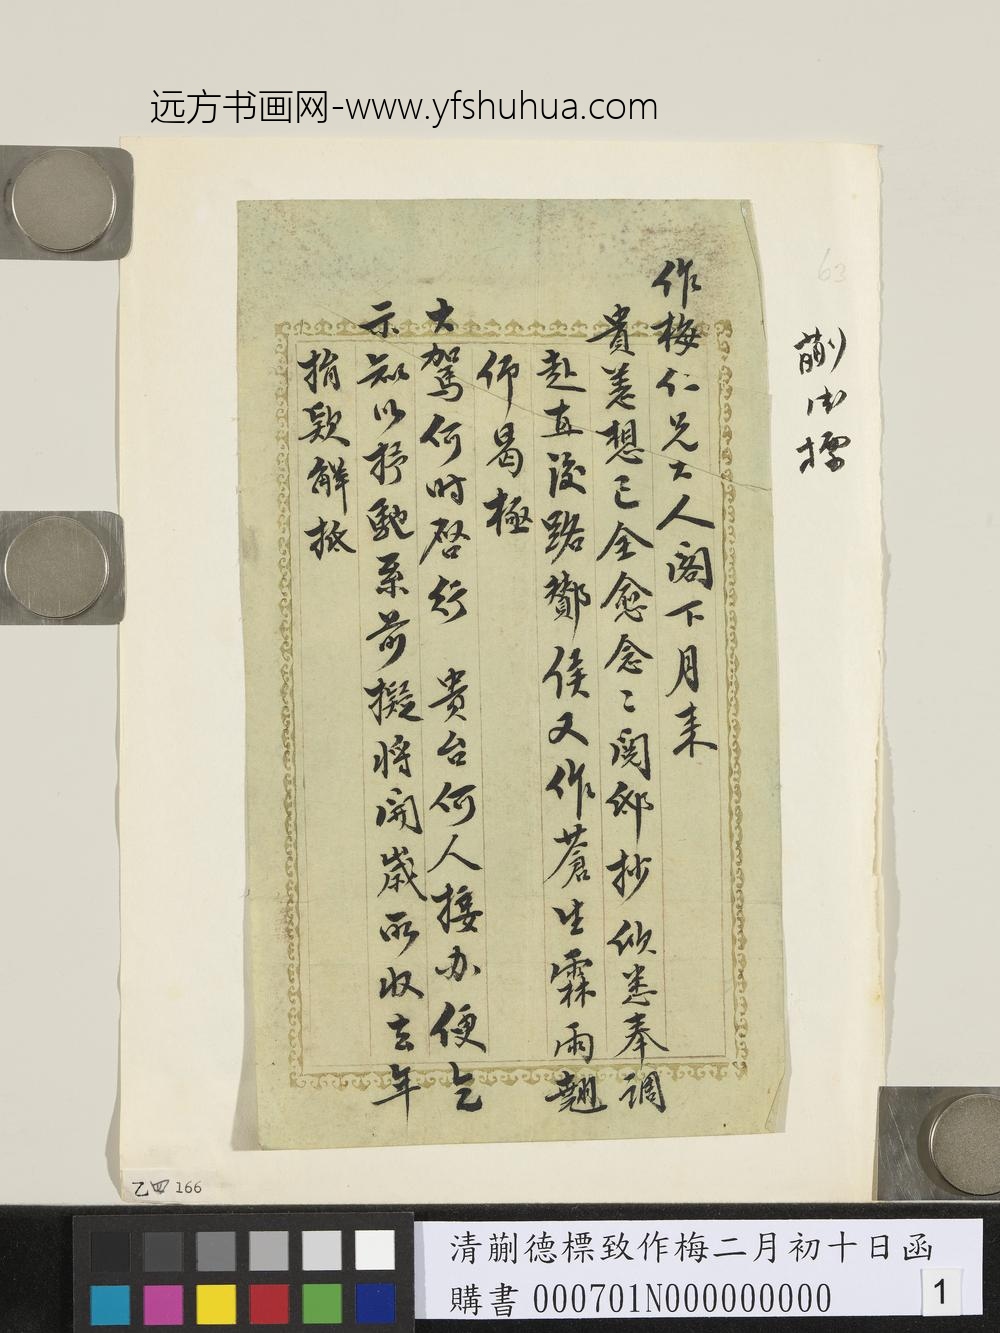 远方书画网-www.yfshuhua.com
63
蒯德標
作梅仁兄大人阁下月来
貴恙想已全愈念〻閱邸抄欣悉奉調
赴直後路鄭侯又作蒼生霖雨翹
仰曷極
大駕何时啓行 貴台何人接办便乞
示知以抒馳系前擬將開歲所收去年
捐款解抵
乙四 166
清蒯德標致作梅二月初十日函
購書 000701N000000000
1